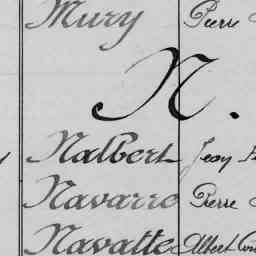 Mury Pierre
N.
Nalbert Jean
Navarre Pierre
Navatte Albert